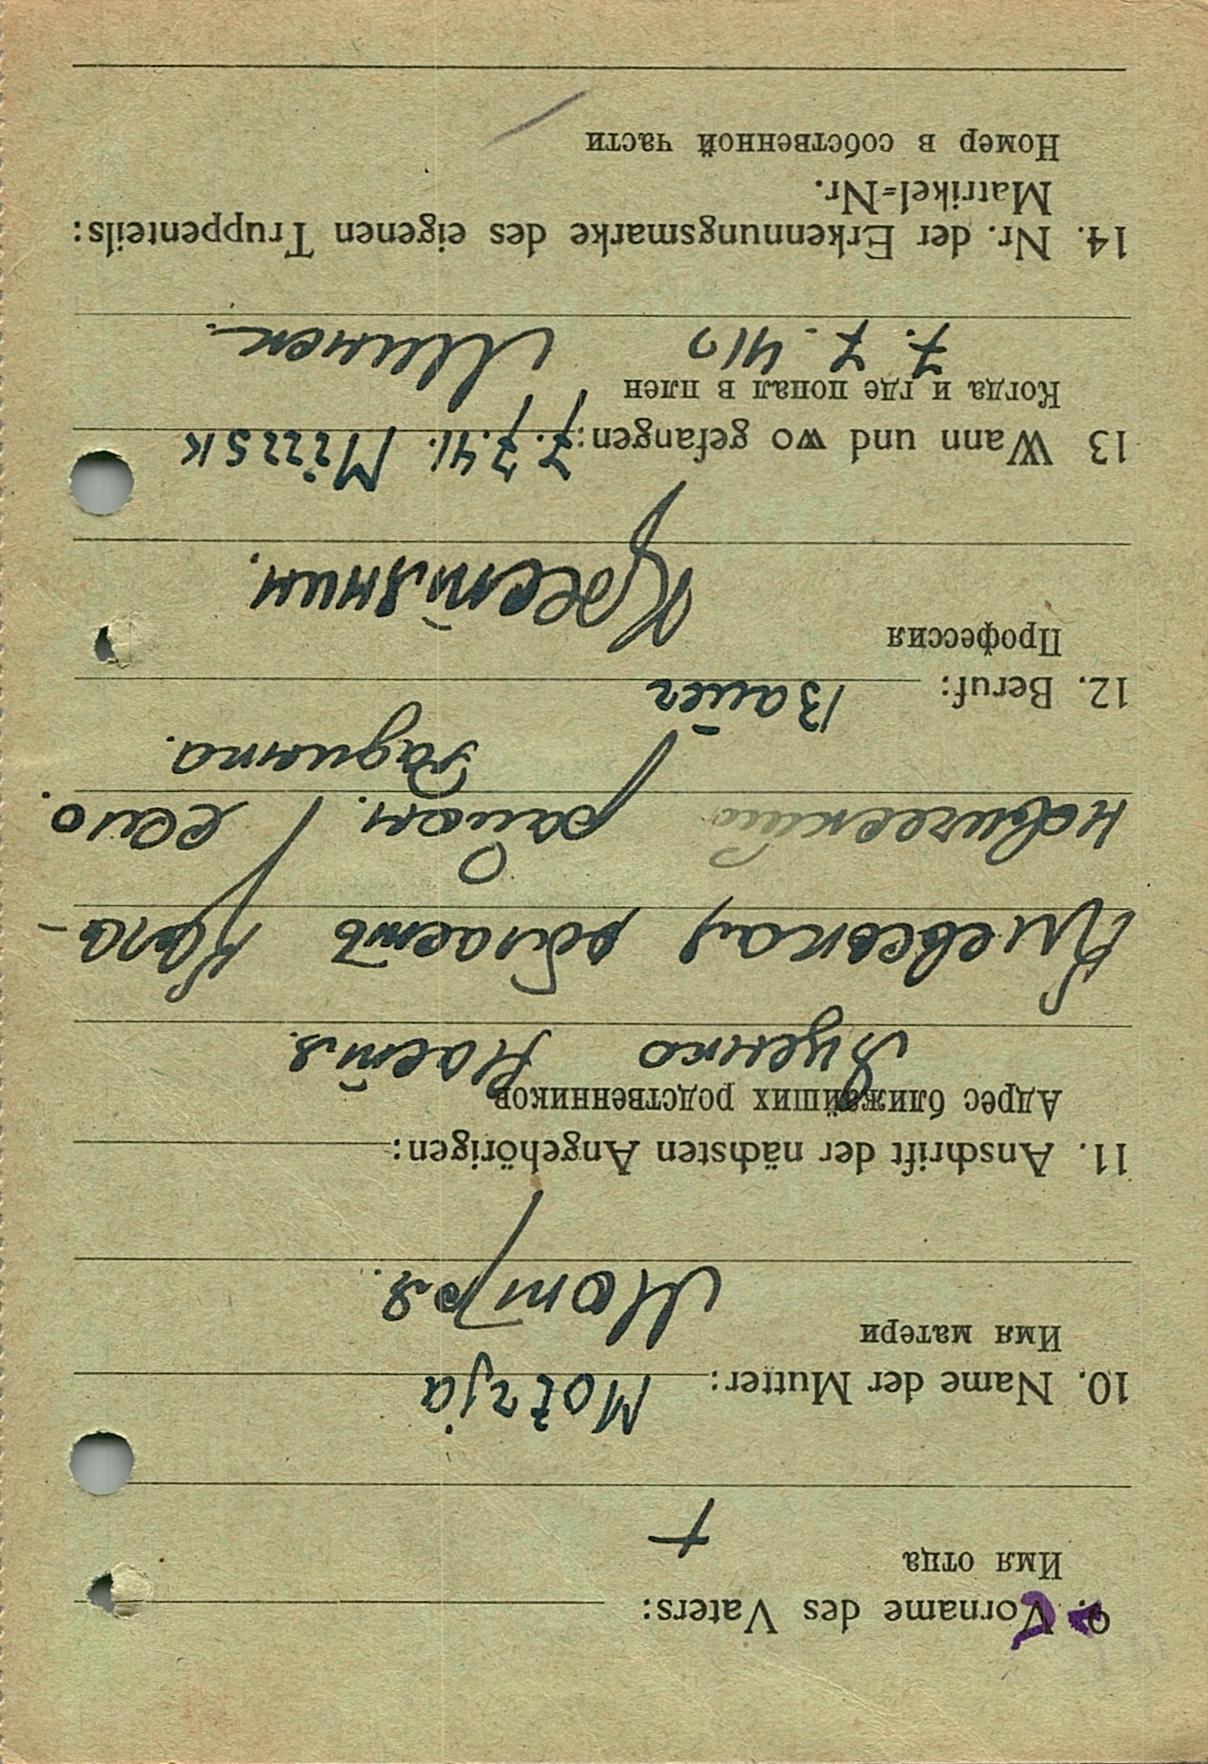 9. Vorname des Vaters:
Имя отца
†
10. Name der Mutter: Motrja
Имя матери
Мотря.
11. Anschrift der nächsten Angehörigen:
Адрес ближайших родственников
Яценко Настя.
Киевская область Кага-
новический район. село.
Радинка.
12. Beruf: Bauer
Профессия
Крестянин.
13 Wann und wo gefangen: 7.7.41. Minsk
Когда и где попал в плен
7. 7. 41г Минск.
14. Nr. der Erkennungsmarke des eigenen Truppenteils:
Matrikel=Nr.
Номер в собственной части